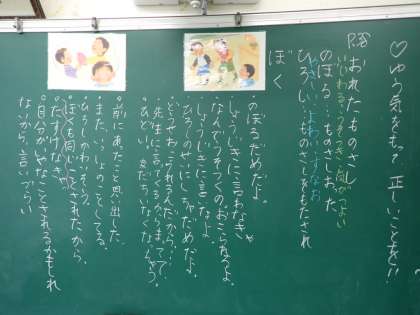 ♡ゆう気をもって正しいことを!!
P.86
おれたものさし
いじわる、うそつき、気がつよい
のぼる…ものさしおった
やさしい、よわい、すなお
ひろし…ものさしをもたされ
ぼく
・のぼるだめだよ。
・しょうじきに言わなきゃ
・なんでうそつくの、おこらないよ。
・しょうじきに言いなよ。
・ひろしのせいにしちゃだめだよ。
・どうせおこられるんだから…
・先生におこられるからってって
・ひどい!友だちいなくなっちゃう。
・前にあったことを思い出した。
・また、いっしょのことしてる。
・ひろしがかわいそう。
・ぼくも同じことをされたから、
たすけなきゃ。
・自分がいやなことをされるかもしれ
ないから、言いづらい